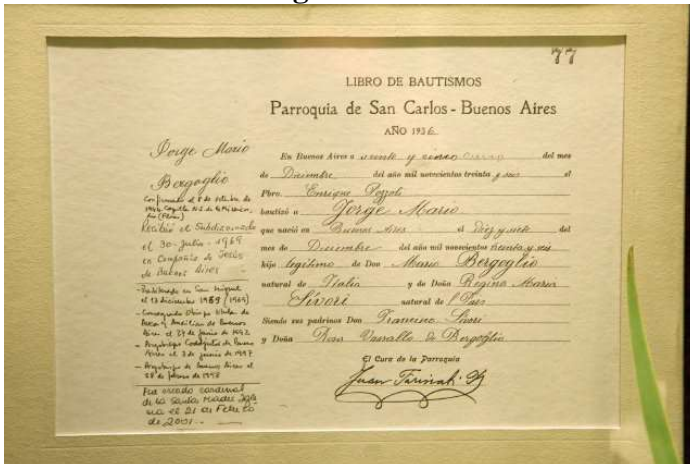 77
LIBRO DE BAUTISMOS
Parroquia de San Carlos - Buenos Aires
AÑO 1936
En Buenos Aires a veinte y cinco del mes
de Diciembre del año mil novecientos treinta y seis el
Pbro. Enrique Pozzoli
bautizó a Jorge Mario
que nació en Buenos Aires el diez y siete del
mes de Diciembre del año mil novecientos treinta y seis
hijo legítimo de Don Mario Bergoglio
natural de Italia y de Doña Regina María
Sívori natural de l País
Siendo sus padrinos Don Francisco Sívori
y Doña Rosa Vassallo de Bergoglio
El Cura de la Parroquia
Juan
Jorge Mario
Bergoglio
Confirmado el 8 de octubre de
Recibió el Subdiaconado
el 30 - Julio - 1969
en Compañía de Jesús
de Buenos Aires
en San Miguel
el 13 diciembre 1969 (1969)
- Consagrado Obispo titular de
Auca y Auxiliar de Buenos
Aires el 27 de junio de 1992
- Arzobispo Coadjutor de Buenos
Aires el 3 de junio de 1997
- Arzobispo de Buenos Aires el
28 de febrero de 1998
Fue creado cardenal
de la Santa Madre Igle
sia el 21 de Febrero
de 2001.-